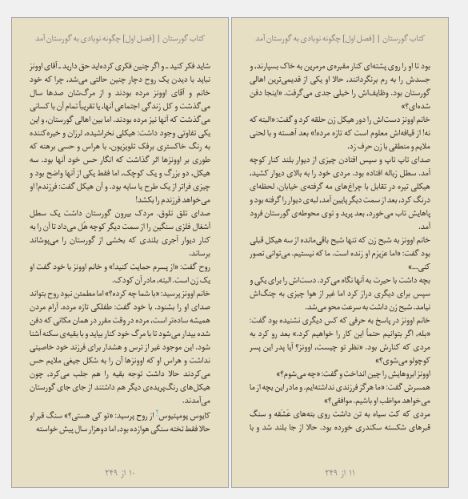 کتاب گورستان | [فصل اول] چگونه نوبادی به گورستان آمد
بود تا او را روی پشته‌ای کنار مقبره‌ی مرمرین به خاک بسپارند، و
جسدش را به رم برنگردانند، حالا او یکی از قدیمی‌ترین اهالی
گورستان بود. وظایف‌اش را خیلی جدی می‌گرفت. «اینجا دفن
شده‌ای؟»
خانم اوونز دست‌اش را دور هیکل زن حلقه کرد و گفت: «البته که
نه! از قیافه‌اش معلوم است که تازه مرده!» بعد آهسته و با لحنی
ملایم و منطقی با زن حرف زد.
صدای تاپ تاپ و سپس افتادن چیزی از دیوار بلند کنار کوچه
آمد. سطل زباله افتاده بود. مردی خود را به بالای دیوار کشید،
هیکلی تیره در تقابل با چراغ‌های مه گرفته‌ی خیابان. لحظه‌ای
درنگ کرد، بعد از سمت دیگر پایین آمد، لبه‌ی دیوار را گرفته بود و
پاهایش تاب می‌خورد، بعد پرید و توی محوطه‌ی گورستان فرود
آمد.
خانم اوونز به شبح زن که تنها شبح باقی‌مانده از سه هیکل قبلی
بود گفت: «اما عزیزم او زنده است. ما که نیستیم. می‌توانی تصور
کنی...»
بچه داشت با حیرت به آنها نگاه می‌کرد. دست‌اش را برای یکی و
سپس برای دیگری دراز کرد اما غیر از هوا چیزی به چنگ‌اش
نیامد. شبح زن داشت به سرعت محو می‌شد.
خانم اوونز در پاسخ به حرفی که کس دیگری نشنیده بود گفت:
«بله. اگر بتوانیم حتماً این کار را خواهیم کرد.» بعد رو کرد به
مردی که کنارش بود. «نظر تو چیست، اوونز؟ آیا پدر این پسر
کوچولو می‌شوی؟»
اوونز ابروهایش را چین انداخت و گفت: «چه می‌شوم؟»
همسرش گفت: «ما هرگز فرزندی نداشته‌ایم. و مادر این بچه از ما
می‌خواهد مواظب او باشیم. موافقی؟»
مردی که کت سیاه به تن داشت روی بته‌های عَشَقه و سنگ
قبرهای شکسته سکندری خورده بود. حالا از جا بلند شد و با
۱۱ از ۲۴۹
کتاب گورستان | [فصل اول] چگونه نوبادی به گورستان آمد
شاید فکر کنید ـ و اگر چنین فکری کرده‌اید حق دارید ـ آقای اوونز
نباید با دیدن یک روح دچار چنین حالتی می‌شد، چرا که خود
خانم و آقای اوونز مرده بودند و از مرگ‌شان صدها سال
می‌گذشت و کل زندگی اجتماعی آنها، یا تقریباً تمام آن با کسانی
می‌گذشت که آنها نیز مرده بودند. اما بین اهالی گورستان، و این
یکی تفاوتی وجود داشت: هیکلی نخراشیده، لرزان و خیره‌کننده
به رنگ خاکستری برفک تلویزیون، با هراس و حسی برهنه که
طوری بر اوونزها اثر گذاشت که انگار حس خود آنها بود. سه
هیکل، دو بزرگ و یک کوچک، اما فقط یکی از آنها واضح بود و
چیزی فراتر از یک طرح یا سایه بود. و آن هیکل گفت: فرزندم! او
می‌خواهد فرزندم را بکشد!
صدای تلق تلوق. مردک بیرون گورستان داشت یک سطل
آشغال فلزی سنگین را از سمت دیگر کوچه هل می‌داد تا آن را به
کنار دیوار آجری بلندی که بخشی از گورستان را می‌پوشاند
برساند.
روح گفت: «از پسرم حمایت کنید!» و خانم اوونز با خود گفت او
یک زن است. البته، مادر آن کودک.
خانم اوونز پرسید: «با شما چه کرده؟» اما مطمئن نبود روح بتواند
صدای او را بشنود. با خود گفت: طفلکی تازه مرده. آرام مردن
همیشه ساده‌تر است، مرده در وقت مقرر در همان مکانی که دفن
شده بیدار می‌شود تا با مرگ خود کنار بیاید و با بقیه‌ی سکنه آشنا
شود. این موجود غیر از ترس و هشدار برای فرزند خود خاصیتی
نداشت و هراس او که اوونزها آن را به شکل جیغی ملایم حس
می‌کردند حالا داشت توجه بقیه را هم جلب می‌کرد، چون
هیکل‌های رنگ‌پریده‌ی دیگر هم داشتند از جای جای گورستان
می‌آمدند.
کایوس پومپئیوس از روح پرسید: «تو کی هستی؟» سنگ قبر او
حالا فقط تخته سنگی هوازده بود، اما دوهزار سال پیش خواسته
۱۰ از ۲۴۹